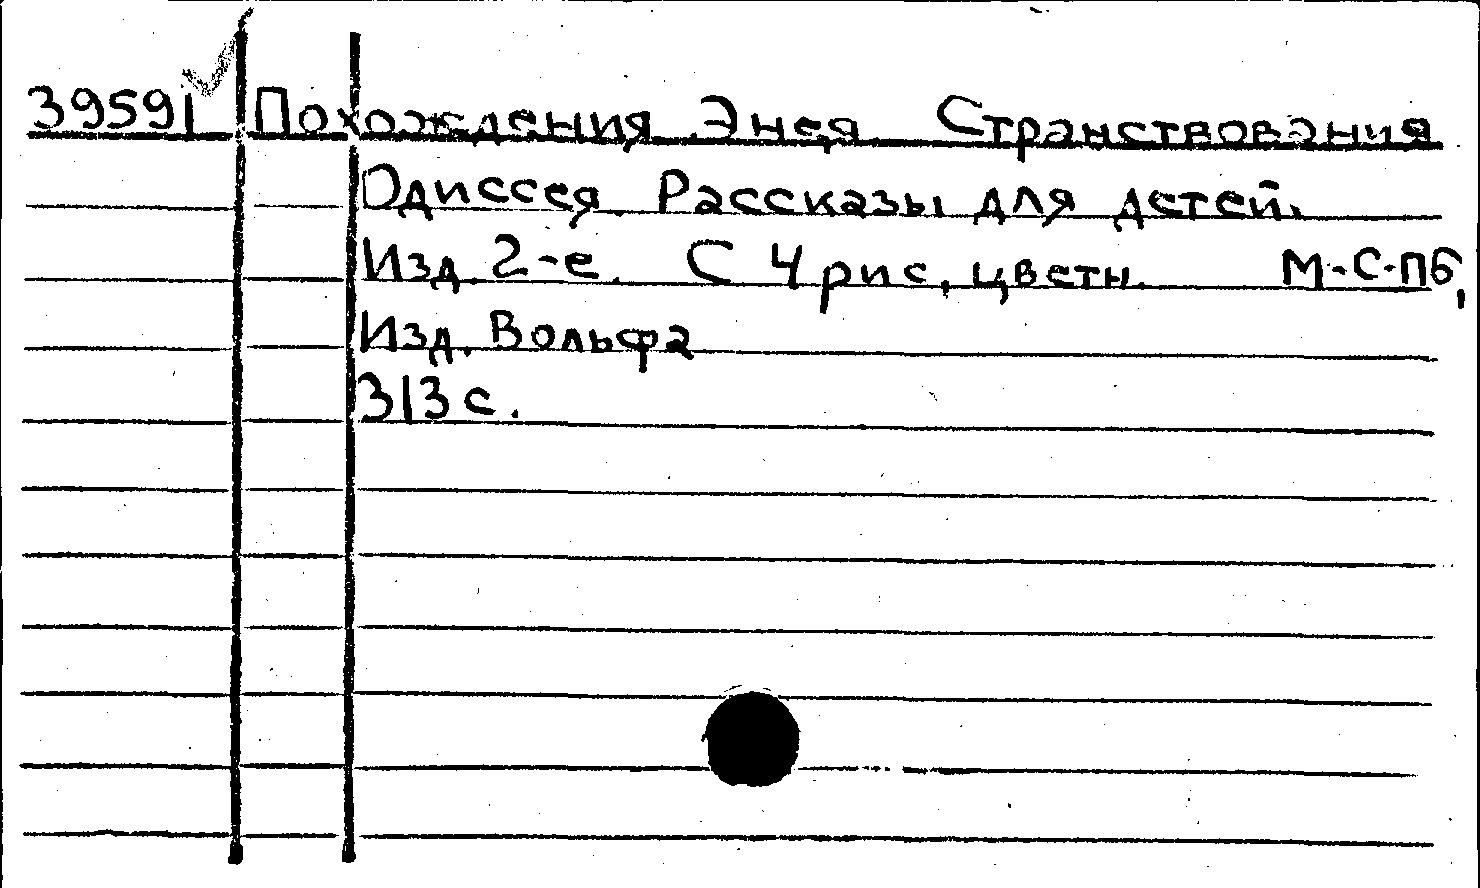 39591 Похождения Энея. Странствования
Одиссея. Рассказы для детей.
Изд. 2-е. С 4 рис, цветн. М-С-Пб,
Изд. Вольфа
313 с.